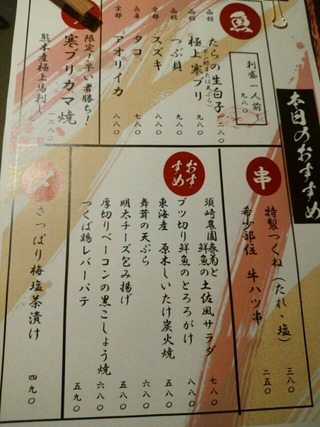 本日のおすすめ
魚
利盛一人前
九八〇
函館
たらの生白子
函館
極上寒ブリ
九八〇
函館
つぶ貝
九八〇
京都
スズキ
八八〇
兵庫
タコ
七八〇
京都
アオリイカ
八八〇
限定!早い者勝ち!
寒ブリカマ焼
熊本産極上馬刺し
一二八〇
串
特製つくね(たれ・塩)
三八〇
希少部位 牛ハツ串
二五〇
おすすめ
須崎農園春菊と
鮮魚の土佐風サラダ
七八〇
ブツ切り鮮魚のとろろがけ
八八〇
東海産 原木しいたけ炭火焼
五八〇
舞茸の天ぷら
六八〇
明太チーズ包み揚げ
五八〇
厚切りベーコンの黒こしょう焼
六八〇
つくば鶏レバーパテ
五九〇
〆
さっぱり梅塩茶漬け
四九〇